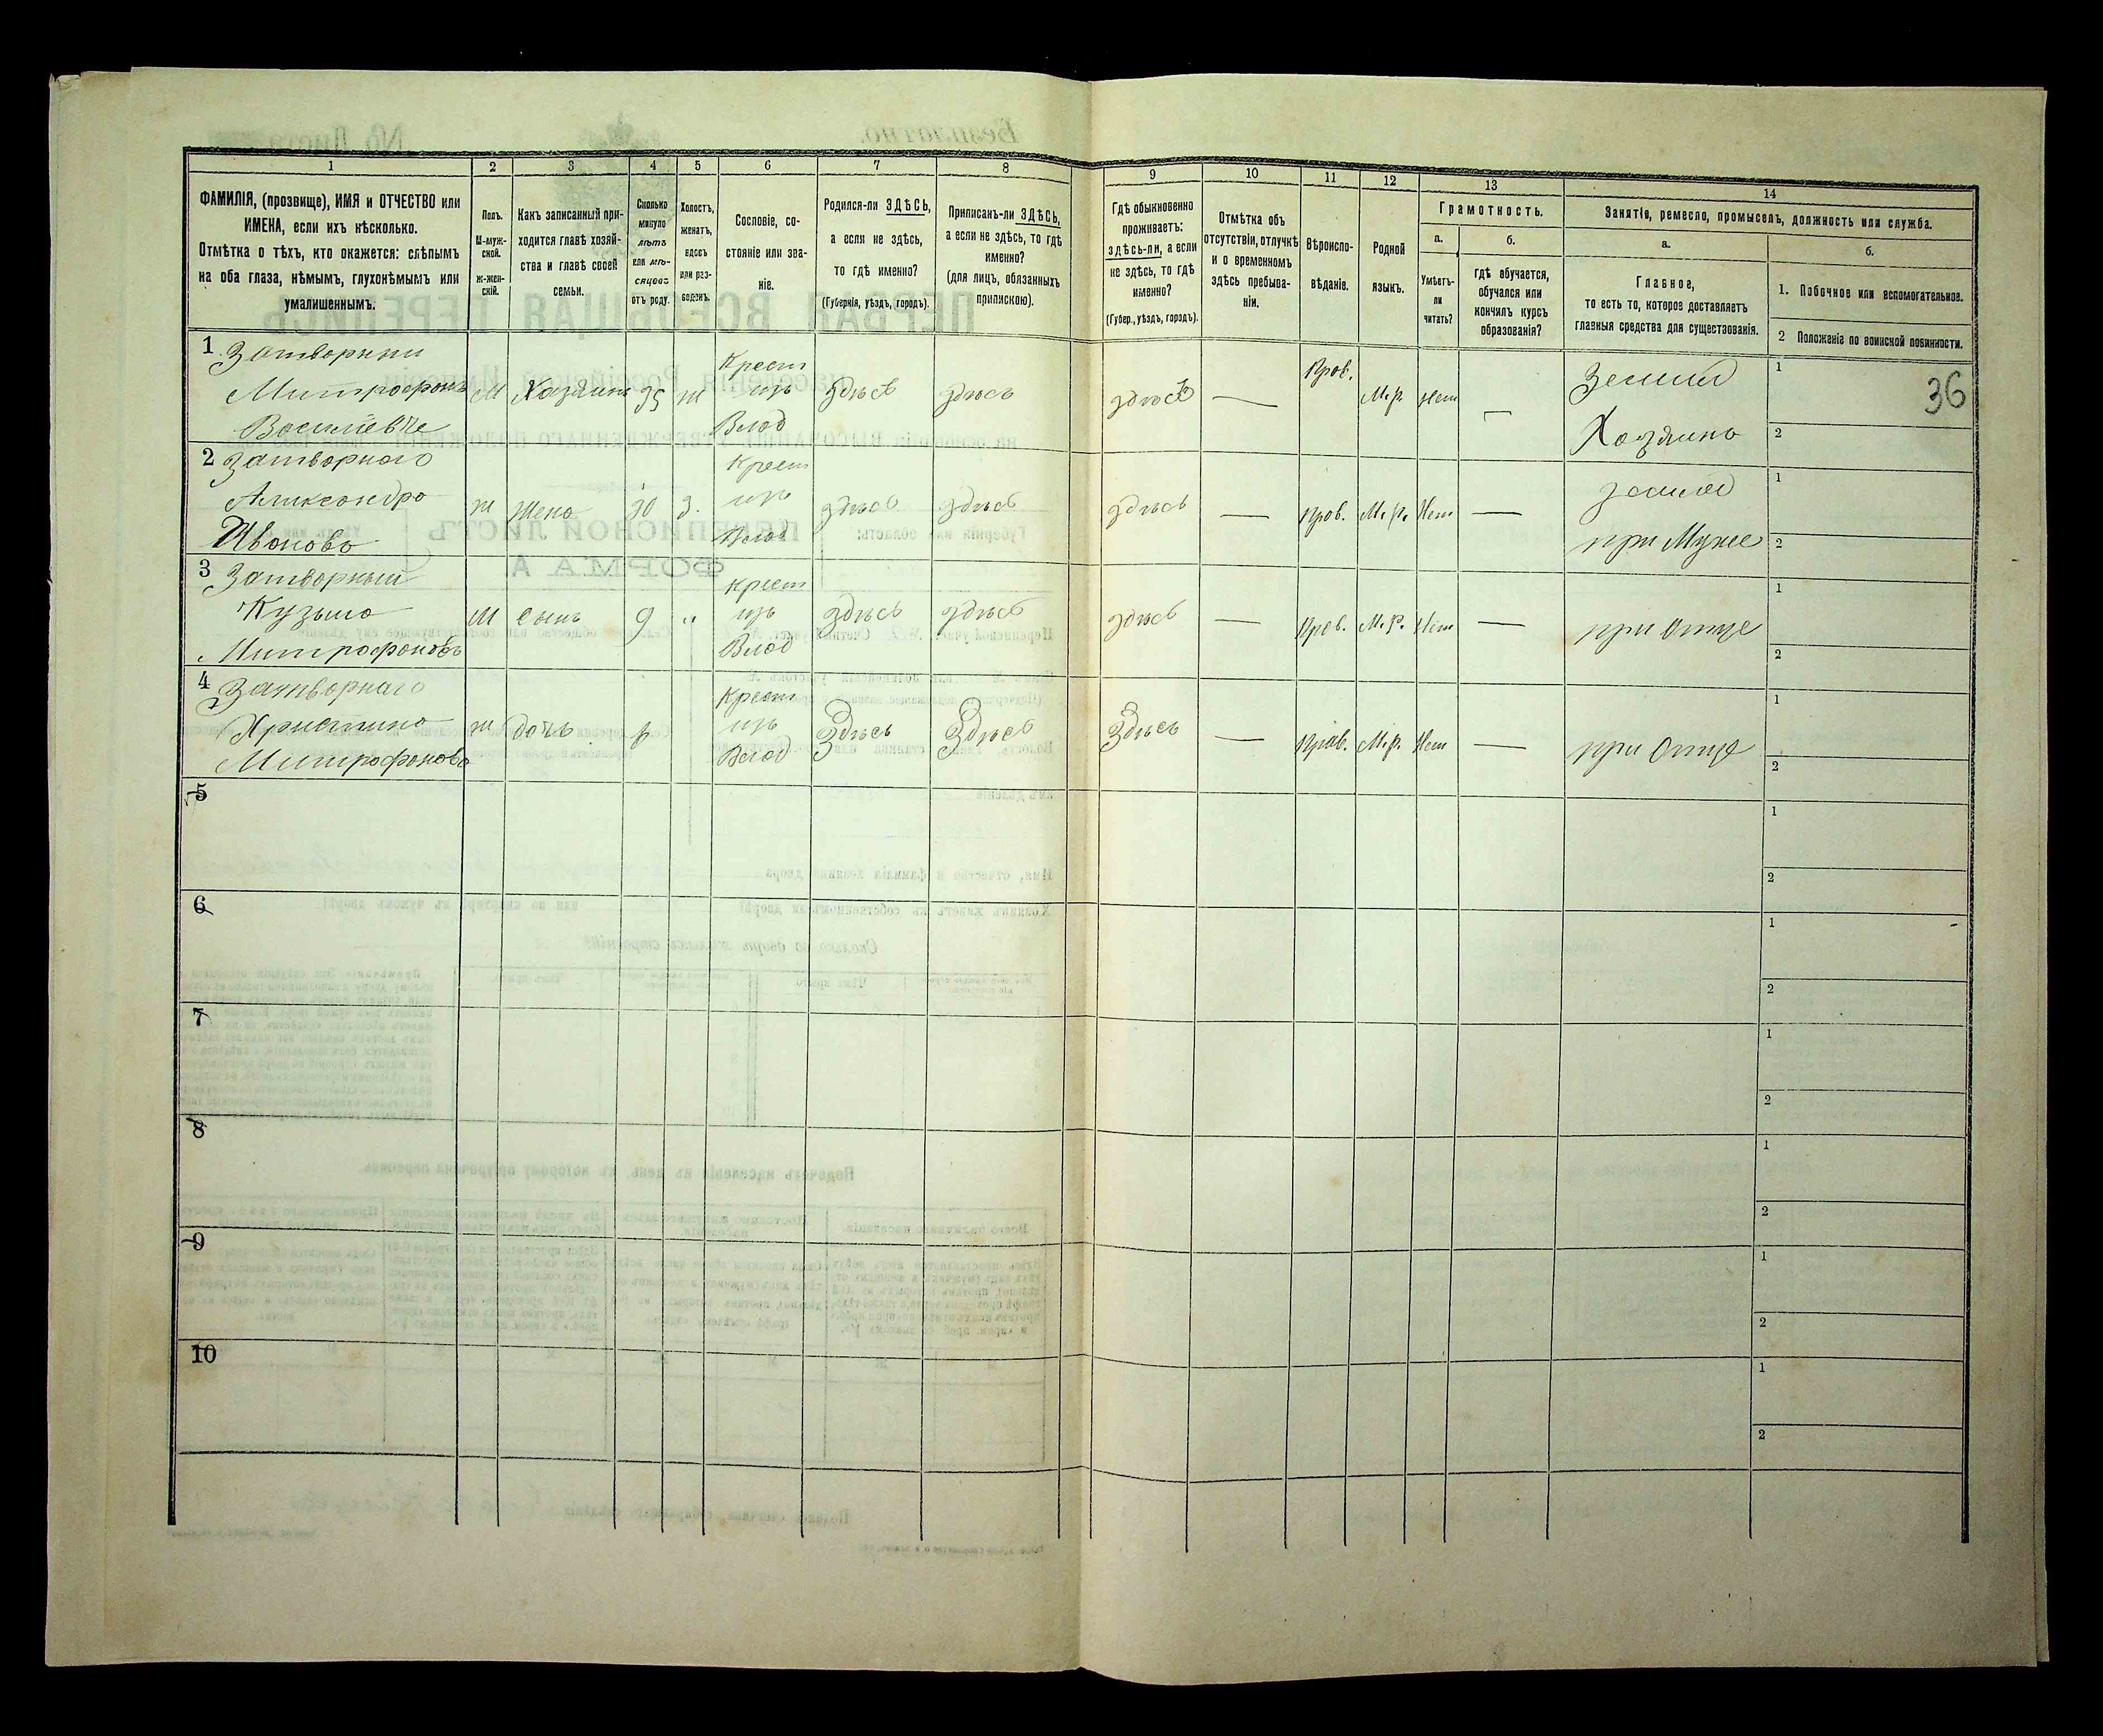 1 2 3 4 5 6 7 8 9 10 11 12 13 14
ФАМИЛІЯ, (прозвище), ИМЯ и ОТЧЕСТВО или
ИМЕНА, если ихъ нѣсколько.
Отмѣтка о тѣхъ, кто окажется: слѣпымъ
на оба глаза, нѣмымъ, глухонѣмымъ или
умалишеннымъ.
Полъ.
М-муж-
ской.
ж-жен-
скій.
Какъ записанный при-
ходится главѣ хозяй-
ства и главѣ своей
семьи.
Сколько
минуло
лѣтъ
или мѣ-
сяцевъ
отъ роду.
Холостъ,
женатъ,
вдовъ
или раз-
веденъ.
Сословіе, со-
стояніе или зва-
ніе.
Родился-ли ЗДѢСЬ,
а если не здѣсь,
то гдѣ именно?
(Губернія, уѣздъ, городъ).
Приписанъ-ли ЗДѢСЬ,
а если не здѣсь, то гдѣ
именно?
(для лицъ, обязанныхъ
припискою).
Гдѣ обыкновенно
проживаетъ:
здѣсь-ли, а если
не здѣсь, то гдѣ
именно?
(Губер., уѣздъ, городъ).
Отмѣтка объ
отсутствіи, отлучкѣ
и о временномъ
здѣсь пребыва-
ніи.
Вѣроиспо-
вѣданіе.
Родной
языкъ.
Грамотность.
а.
Умѣетъ-
ли
читать?
б.
Гдѣ обучается,
обучался или
кончилъ курсъ
образованія?
Занятіе, ремесло, промыселъ, должность или служба.
а.
Главное,
то есть то, которое доставляетъ
главныя средства для существованія.
б.
1. Побочное или вспомогательное.
2 Положеніе по воинской повинности.
36
1
Митрофонъ
М Хозяинъ 35 ж
Крест
изъ
Влад
здѣсь здѣсь здѣсь —
Прав. М.р. Нет —
Землед
Хозяинъ
1
2
2 Затворного
Александро
Ивоново
ж Жена 30 з.
Крест
изъ
Влад
здѣсь здѣсь здѣсь —
Прав. М.р. Нет —
землед
при Муже
1
2
3 Затворный
Кузьмо
Митрофоновъ
М Сынъ 9 "
Крест
изъ
Влад
здѣсь здѣсь здѣсь —
Прав. М.р. Нет —
при Отце
1
2
4 Затворнаго
Христино
Митрофоново
ж дочь
Крест
изъ
Влад
Здѣсь Здѣсь Здѣсь —
Прав. М.р. Нет —
при Отце
1
2
5
1
2
6
1
2
7
1
2
8
1
2
9
1
2
10
1
2